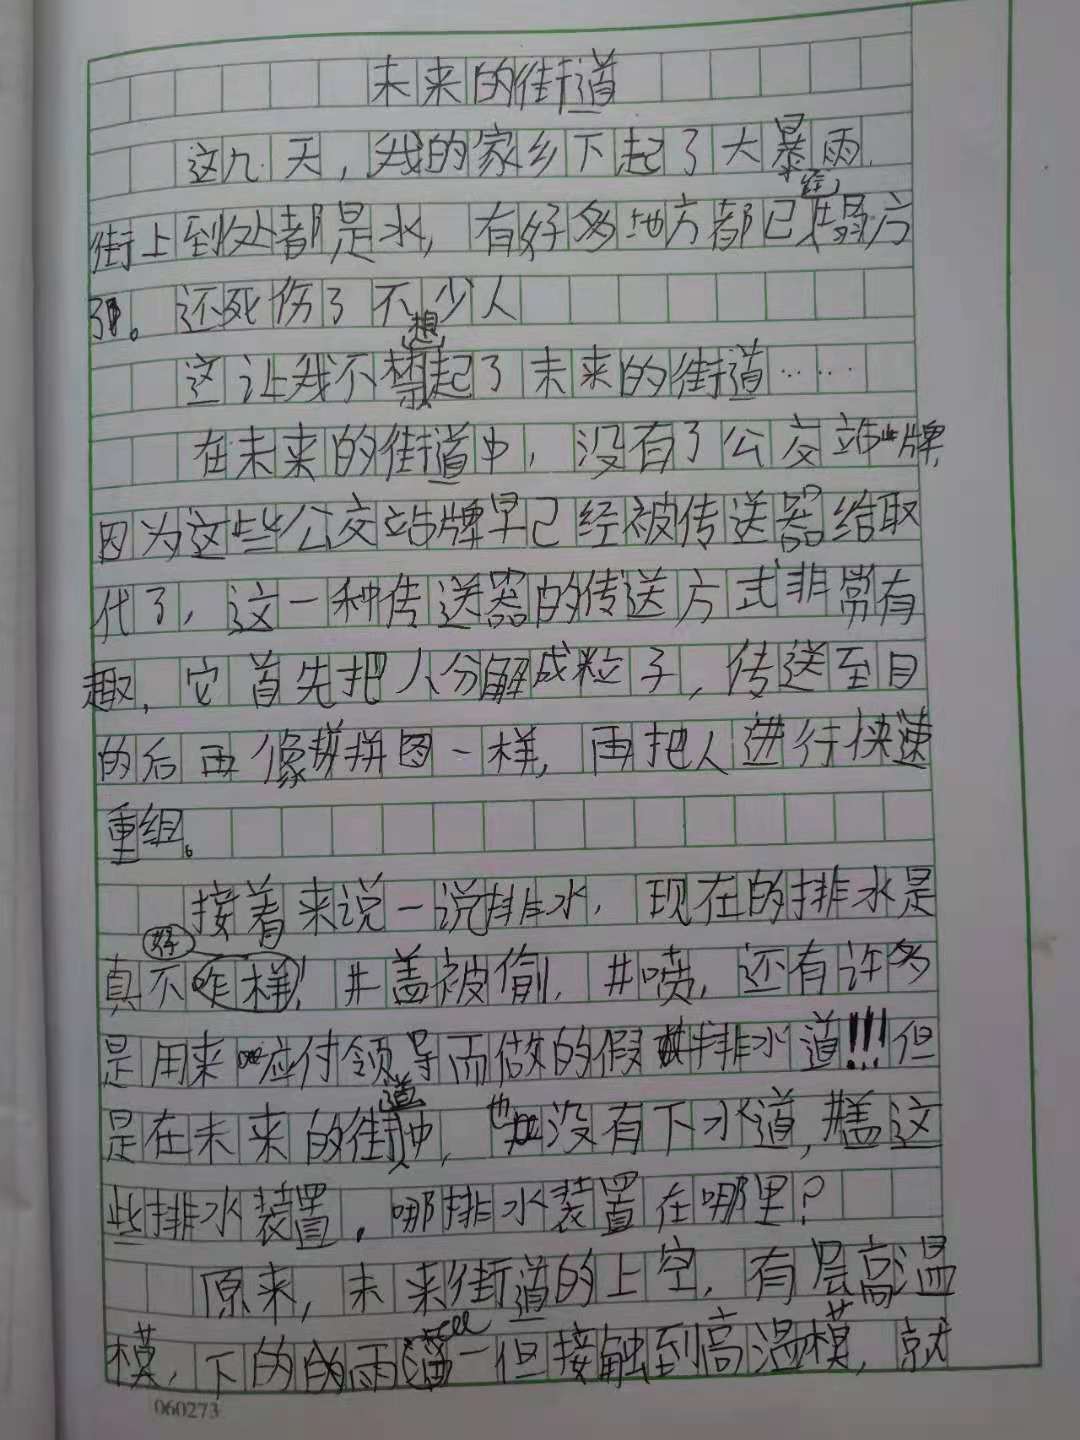 未来的街道
这几天，我的家乡下起了大暴雨，
街上到处都是水，有好多地方都已经塌方
了。还死伤了不少人
这让我不禁想起了未来的街道……
在未来的街道中，没有了公交站牌，
因为这些公交站牌早已经被传送器给取
代了，这一种传送器的传送方式非常有
趣，它首先把人分解成粒子，传送至目
的后再像拼图一样，再把人进行快速
重组。
接着来说一说排水，现在的排水是
真不好咋样！井盖被偷，井喷，还有许多
是用来应付领导而做的假排水道!!!但
是在未来的街道中，也没有下水道，井盖这
些排水装置，哪排水装置在哪里？
原来，未来街道的上空，有层高温
模，下的的雨一但接触到高温模，就
060273